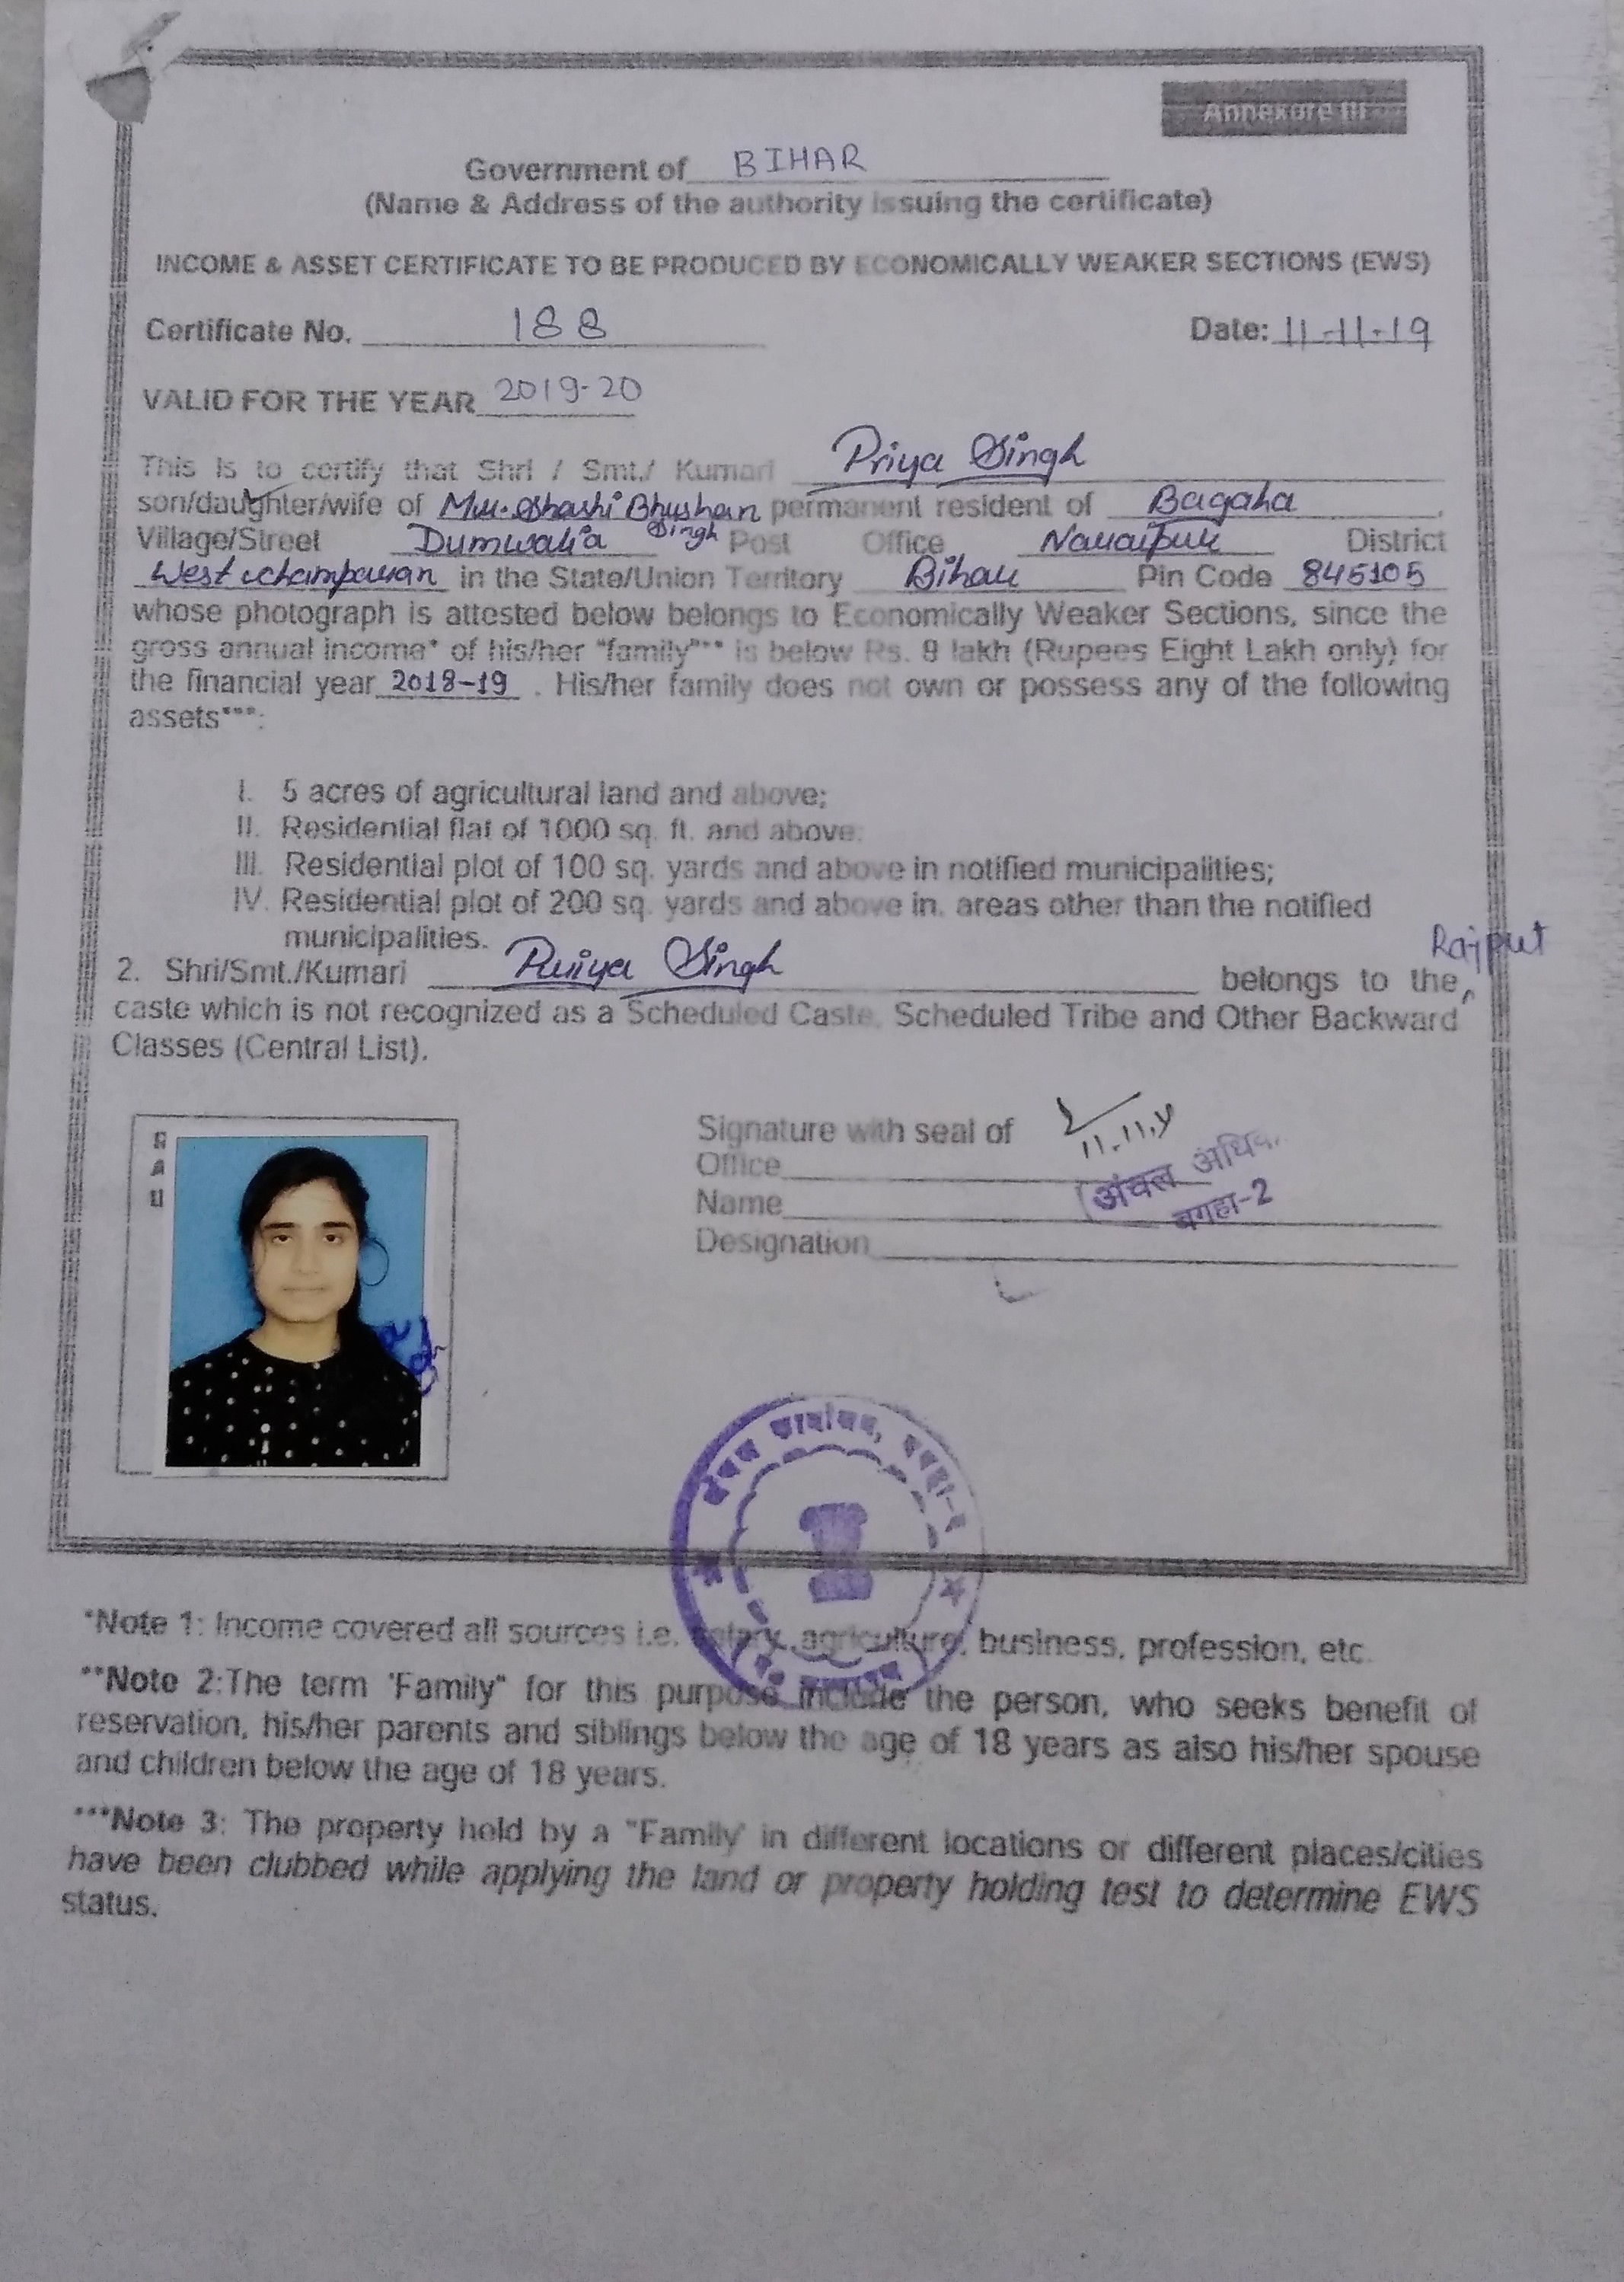 Annexure III
Government of BIHAR
(Name & Address of the authority issuing the certificate)
INCOME & ASSET CERTIFICATE TO BE PRODUCED BY ECONOMICALLY WEAKER SECTIONS (EWS)
Certificate No. 188 Date: 11-11-19
VALID FOR THE YEAR 2019-20
This is to certify that Shri / Smt./ Kumari Priya Singh
son/daughter/wife of Mr. Shashi Bhushan Singh permanent resident of Bagaha,
Village/Street Dumwalia Post Office Naraipur District
West champaran in the State/Union Territory Bihar Pin Code 845105
whose photograph is attested below belongs to Economically Weaker Sections, since the
gross annual income* of his/her "family"** is below Rs. 8 lakh (Rupees Eight Lakh only) for
the financial year 2018-19 . His/her family does not own or possess any of the following
assets***:
I. 5 acres of agricultural land and above;
II. Residential flat of 1000 sq. ft. and above;
III. Residential plot of 100 sq. yards and above in notified municipalities;
IV. Residential plot of 200 sq. yards and above in. areas other than the notified
municipalities.
Rajput
2. Shri/Smt./Kumari Priya Singh belongs to the
caste which is not recognized as a Scheduled Caste, Scheduled Tribe and Other Backward
Classes (Central List).
Signature with seal of
11.11.19
Office
अंचल अधि
Name
बगहा-2
Designation
अंचल कार्यालय, बगहा-२
*Note 1: Income covered all sources i.e. salary, agriculture, business, profession, etc.
**Note 2:The term 'Family" for this purpose include the person, who seeks benefit of
reservation, his/her parents and siblings below the age of 18 years as also his/her spouse
and children below the age of 18 years.
***Note 3: The property held by a "Family' in different locations or different places/cities
have been clubbed while applying the land or property holding test to determine EWS
status.